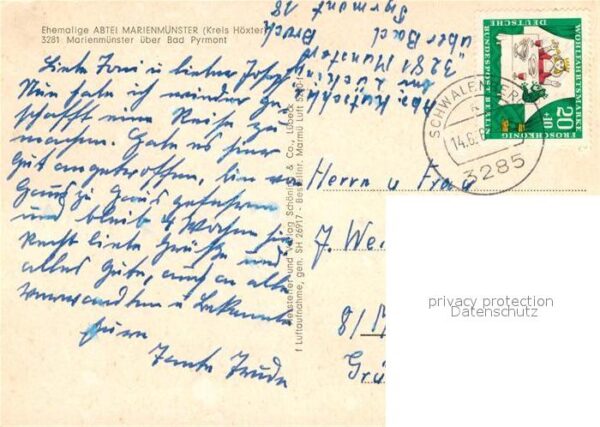 Ehemalige ABTEI MARIENMÜNSTER (Kreis Höxter)
3281 Marienmünster über Bad Pyrmont
Liebe Toni u lieber Josef
Nun habe ich wieder ge-
schafft eine Reise zu
machen. Habe es hier
gut angetroffen, bin von
Haus zu Haus gefahren
und bleibe 4 Wochen hier
Recht liebe Grüße und
alles Gute, auch an alle
Verwandten u Bekannte
Eure
Tante Trude
Hersteller und Verlag Schöning & Co., Lübeck
f Luftaufnahme, gen. SH 26917 - Bestellnr. Marmü Luft
3281 Münster
über Bad
Pyrmont
18
Herrn u Frau
J. We
8/
Grü
SCHWALENBER
14.6.
3285
WOHLFAHRTSMARKE
DEUTSCHE
BUNDESPOST BERLIN
FROSCHKÖNIG
20
+10
privacy protection
Datenschutz